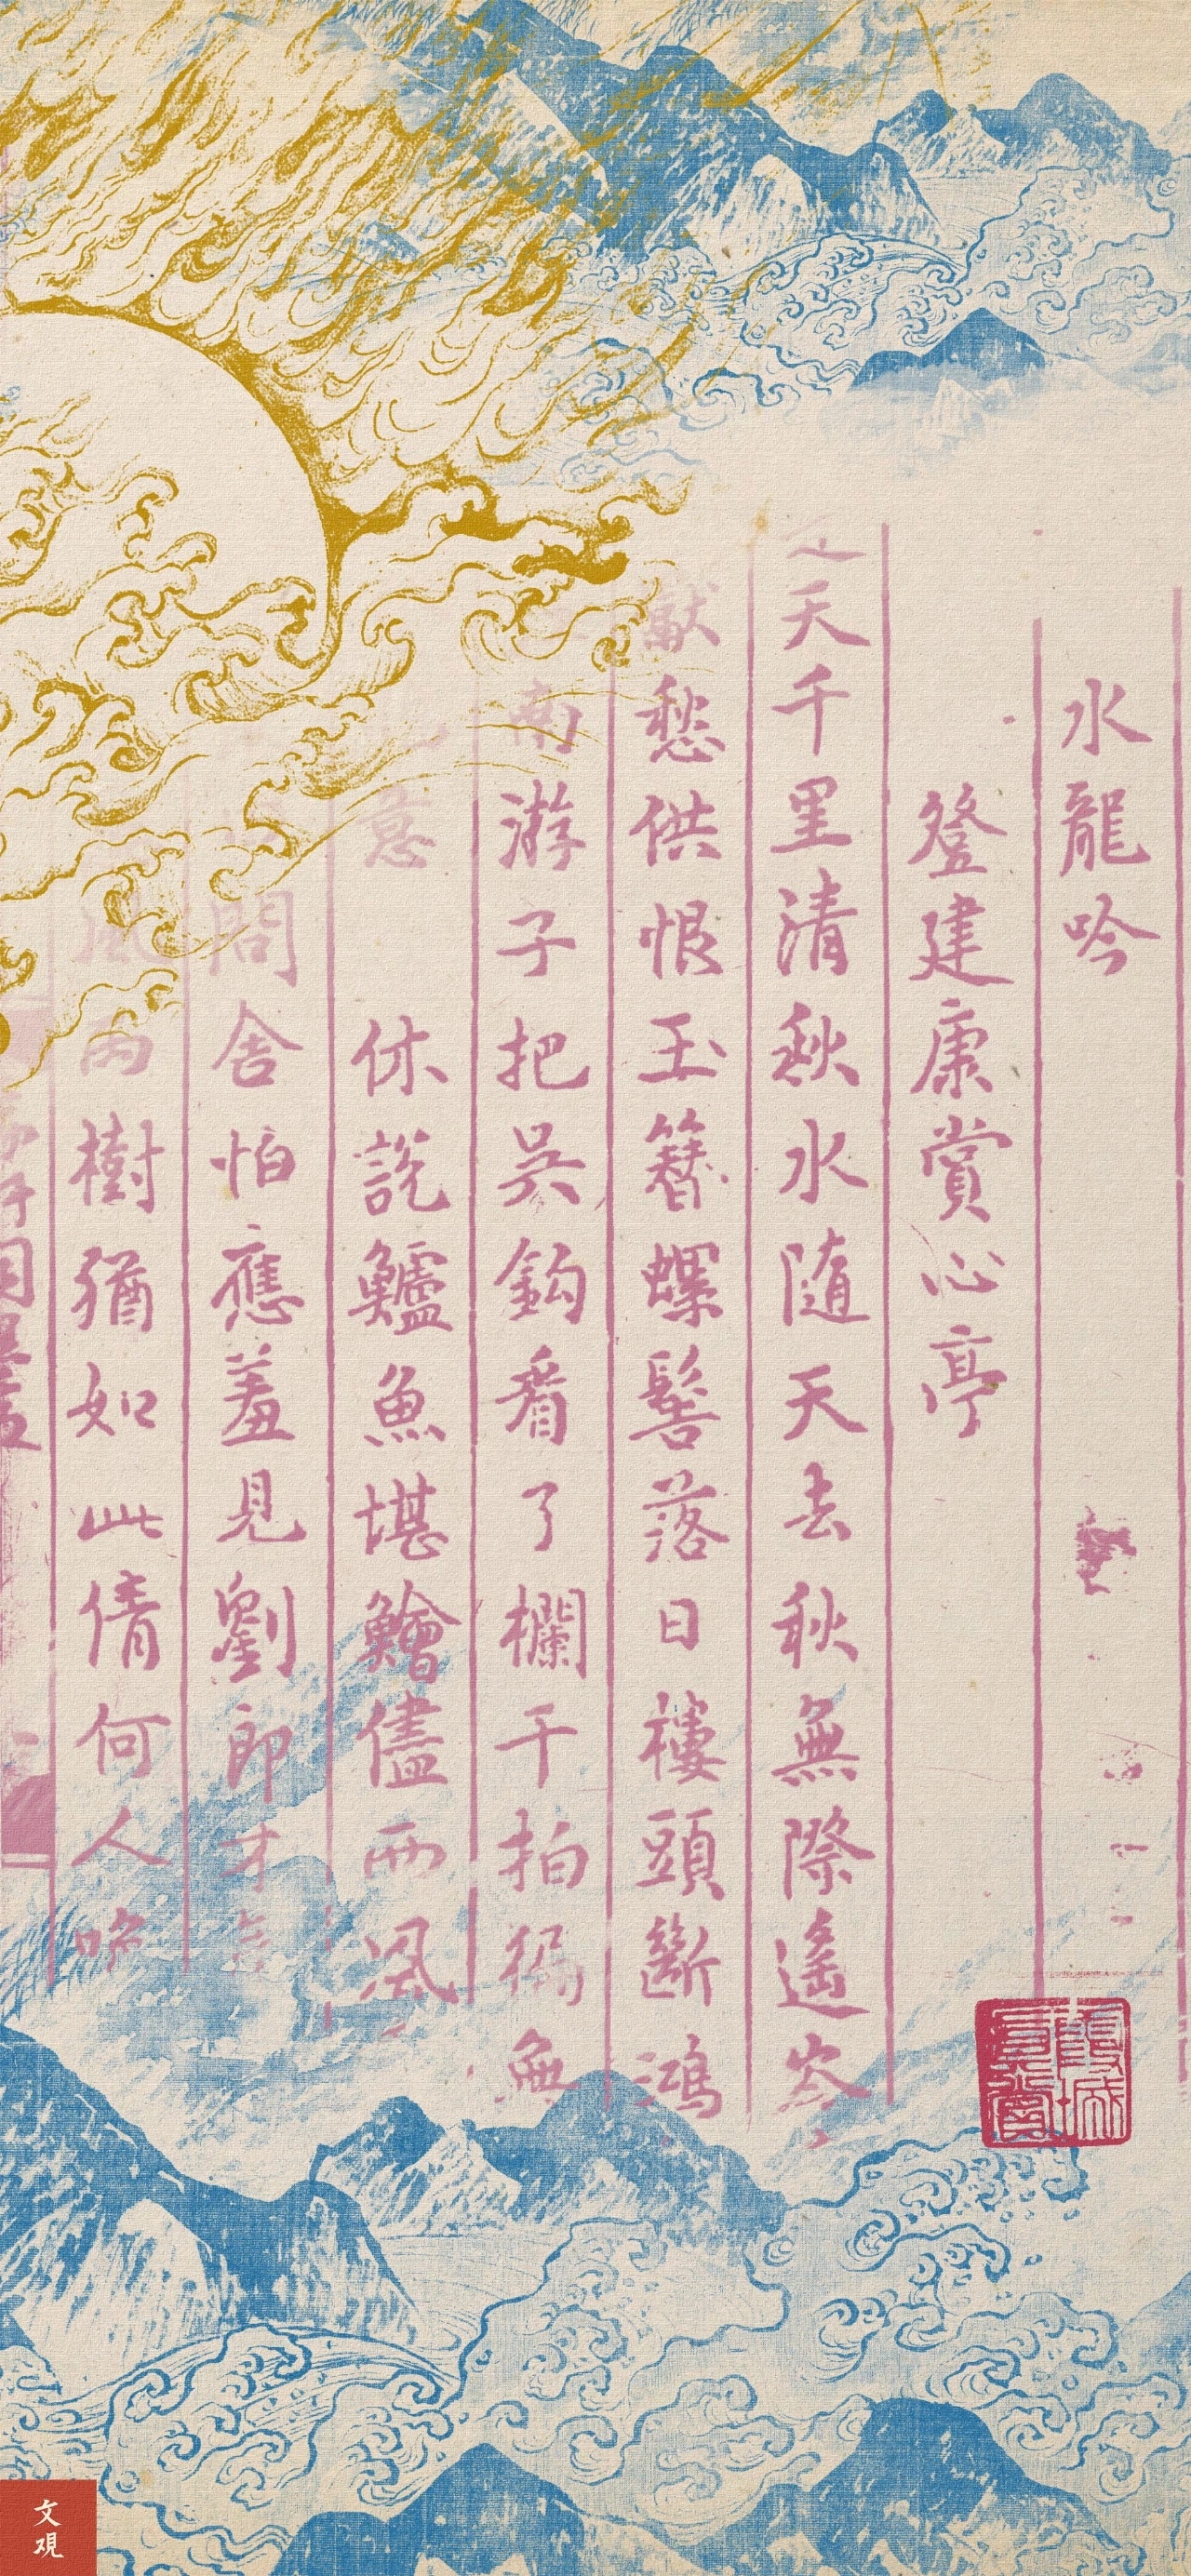 水龍吟
登建康賞心亭
天千里清秋水隨天去秋無際遙岑
獻愁供恨玉簪螺髻落日樓頭斷鴻
南游子把吳鈎看了欄干拍徧無
意 休說鱸魚堪鱠儘西風
問舍怕應羞見劉郎才氣
風雨樹猶如此倩何人喚
文覌